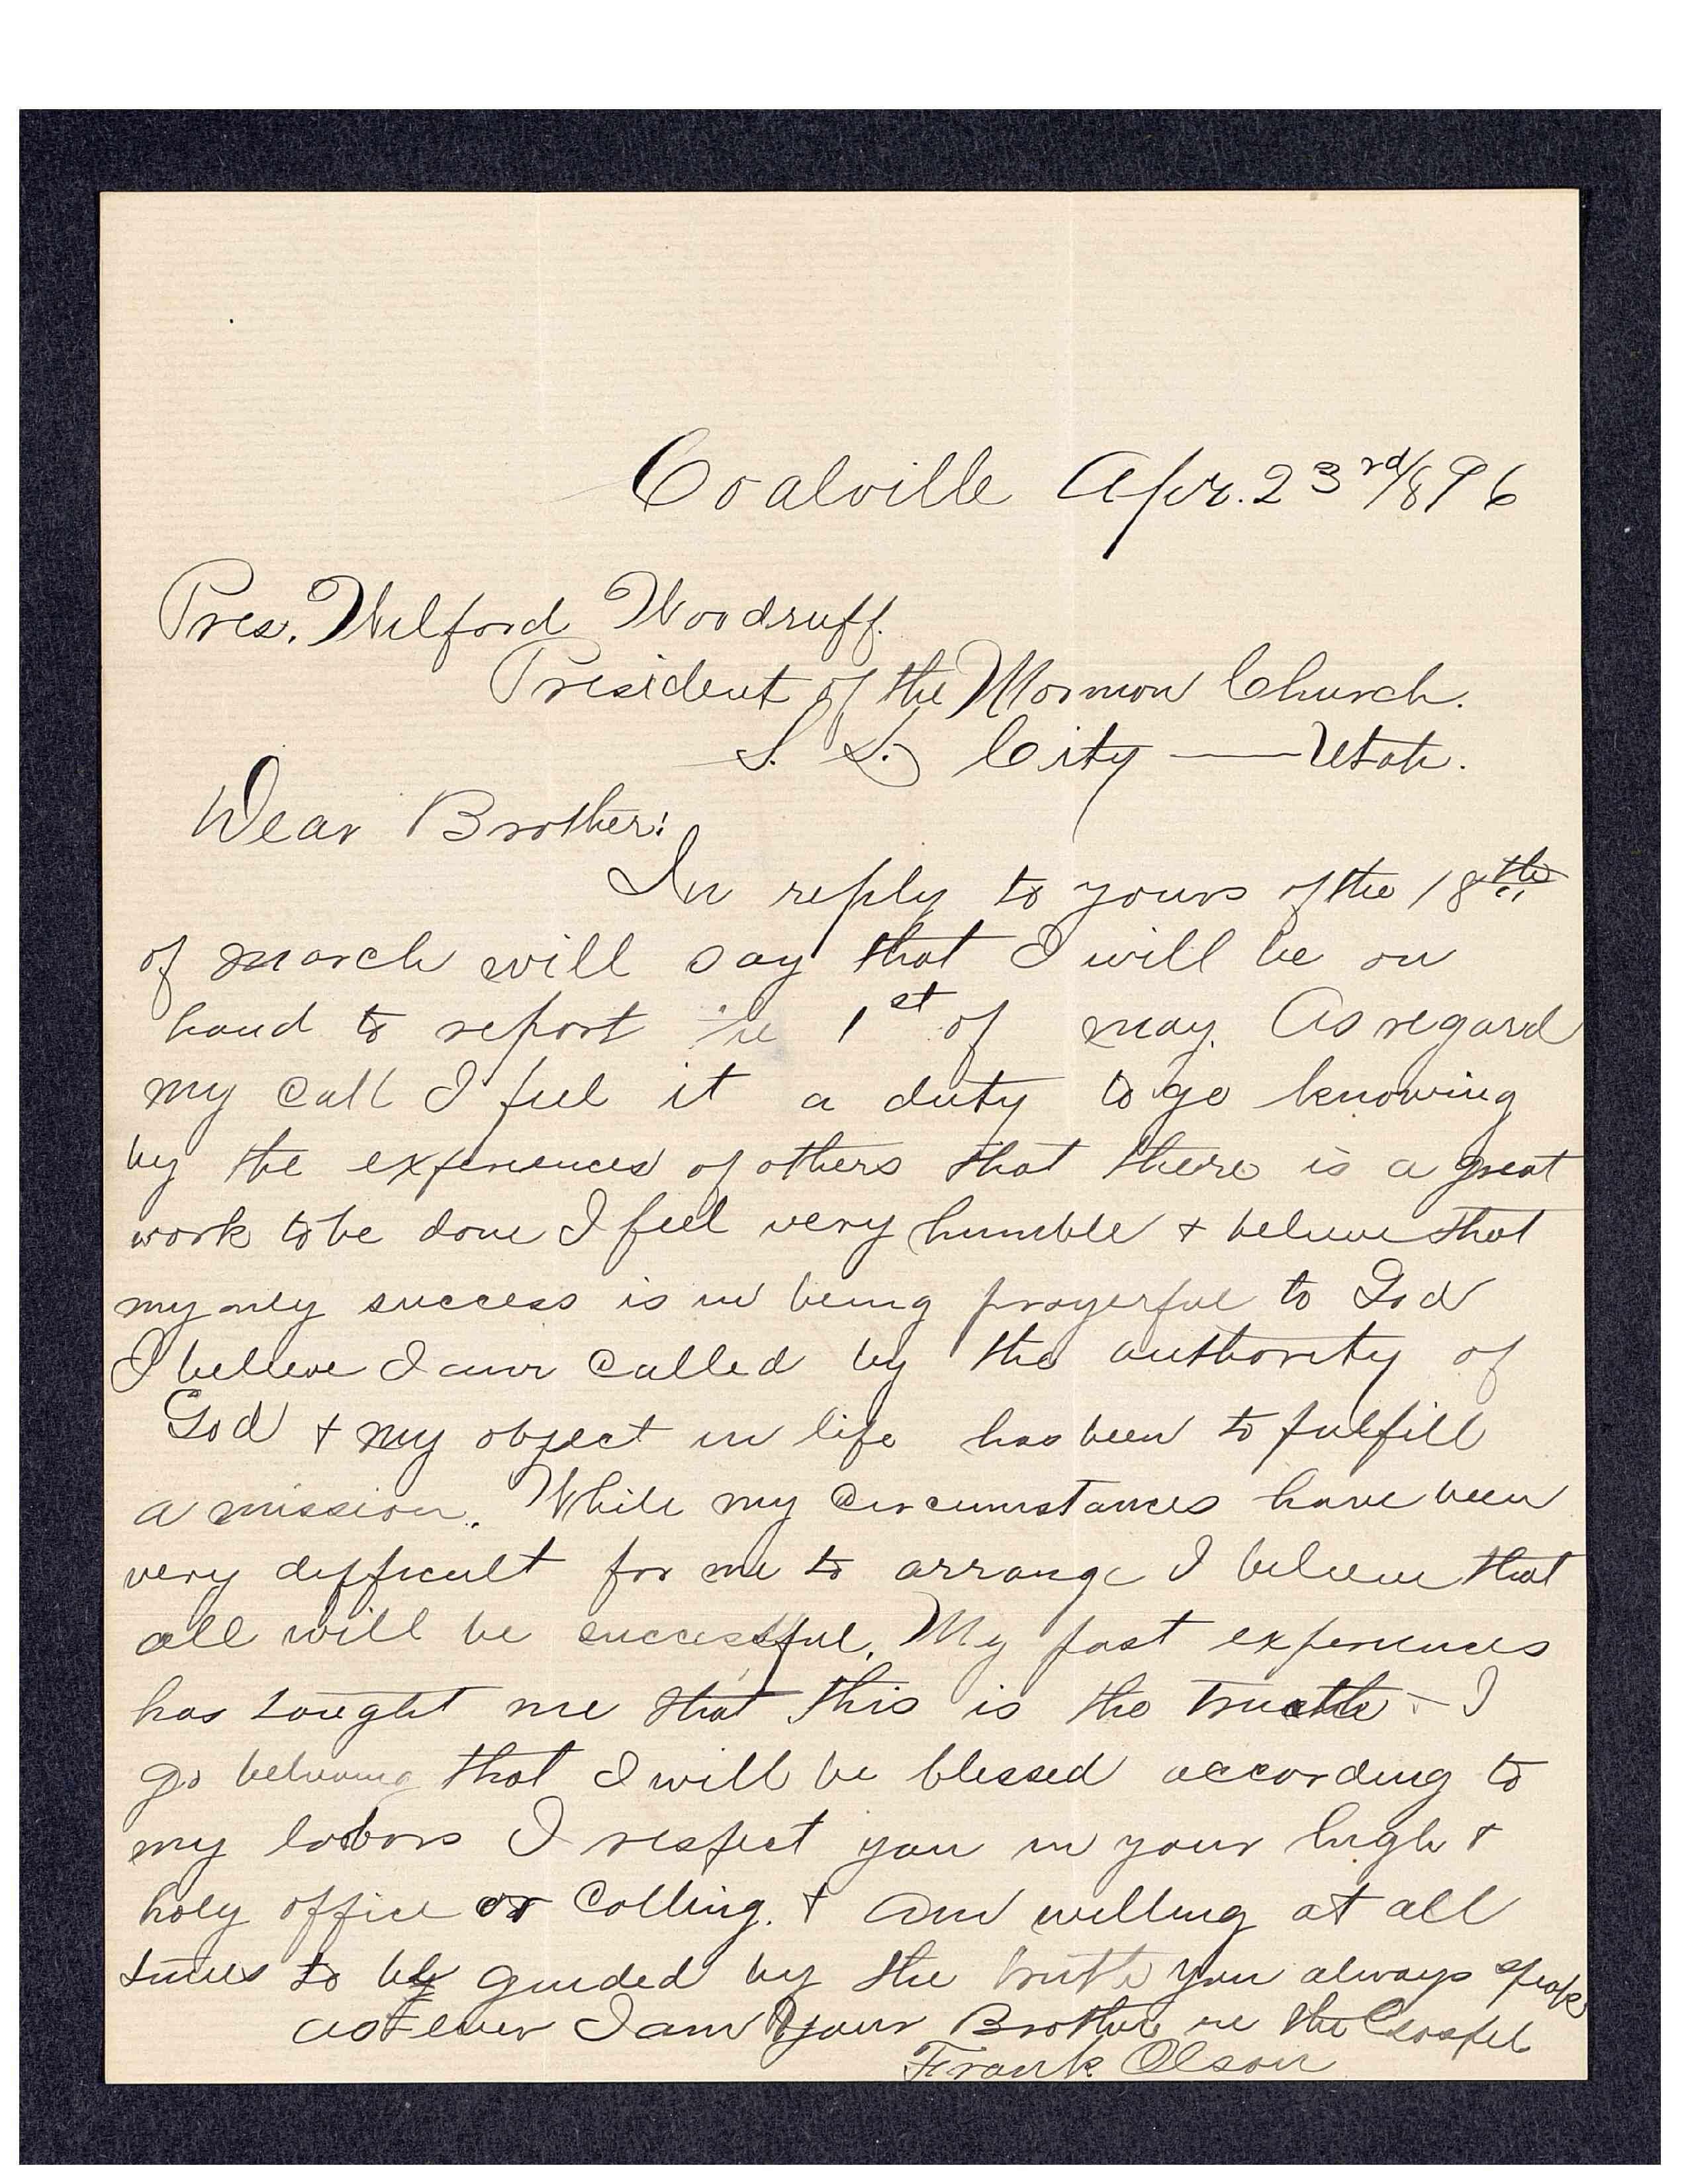 Coalville Apr. 23rd/896
Pres. Wilford Woodruff.
President of the Mormon Church.
S. L. City — Utah.
Dear Brother:
In reply to yours of the 18th
of march will say that I will be on
hand to report the 1st of may. As regard
my call I feel it a duty to go knowing
by the experiences of others that there is a great
work to be done I feel very humble & believe that
my only success is in being prayerful to God
I believe I am called by the authority of
God & my object in life has been to fulfill
a mission. While my circumstances have been
very difficult for me to arrange I believe that
all will be successful. My past experiences
has tought me that this is the truth - I
go believing that I will be blessed according to
my labors I respect you in your high &
holy office or calling. & am willing at all
times to be guided by the truth you always speak
as ever I am Your Brother in the Gospel
Frank Olson